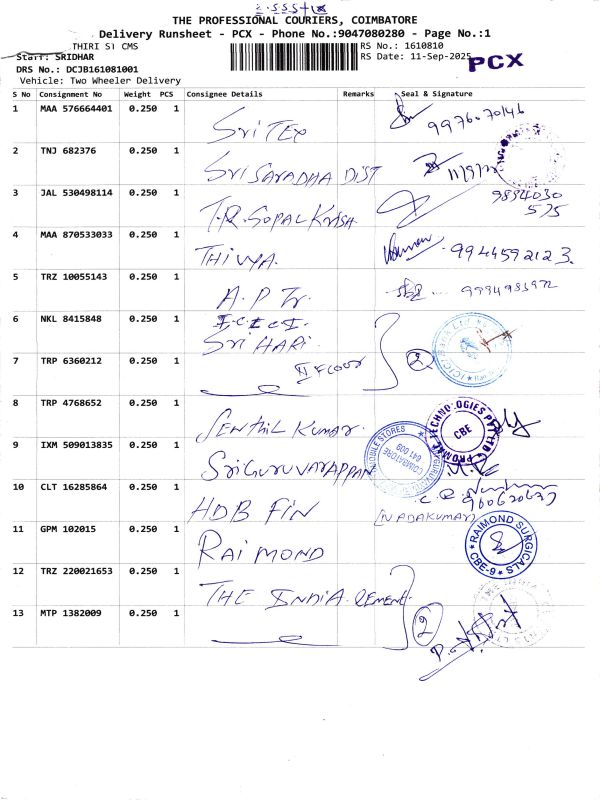 THE PROFESSIONAL COURIERS, COIMBATORE
Delivery Runsheet - PCX - Phone No.:9047080280 - Page No.:1
THIRI SI CMS
Staff: SRIDHAR
RS No.: 1610810
DRS No.: DCJB161081001
RS Date: 11-Sep-2025
PCX
Vehicle: Two Wheeler Delivery
S No Consignment No Weight PCS Consignee Details Remarks Seal & Signature
1 MAA 576664401 0.250 1 Sri TEX 99760 70146
2 TNJ 682376 0.250 1 Sri SARADHA DIST
3 JAL 530498114 0.250 1 T.R. GOPAL KRISH 9894030 575
4 MAA 870533033 0.250 1 THIVYA 9944592123.
5 TRZ 10055143 0.250 1 A.P Tr.
6 NKL 8415848 0.250 1 I.C.I.C.I Sri HARI
7 TRP 6360212 0.250 1 II FLOOR 2
8 TRP 4768652 0.250 1 SENTHIL KUMAR. TECHNOLOGIES PVT LTD CBE
9 IXM 509013835 0.250 1 SRI GURUVAYAPPAN MOBILE STORES COIMBATORE 641 009
10 CLT 16285864 0.250 1 HDB FIN (NADAKUMAR)
11 GPM 102015 0.250 1 RAIMOND RAIMOND SURGICALS CBE-9
12 TRZ 220021653 0.250 1 THE INDIA CEMENT.
13 MTP 1382009 0.250 1 2